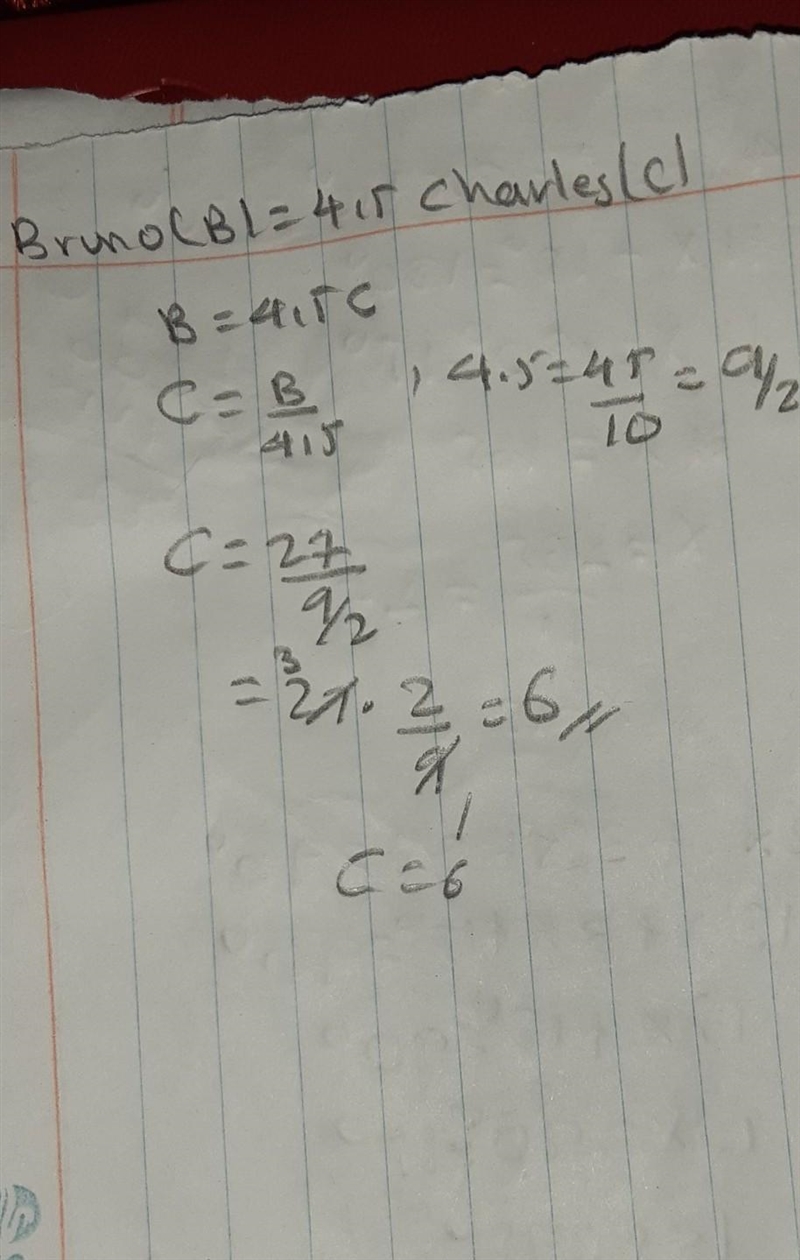 Bruno(B) = 4.5 Charles(C)
B = 4.5 C
C = B/4.5 , 4.5 = 45/10 = 9/2
C = 27/9/2
= 3 27 . 2/9 = 6 //
1
C = 6